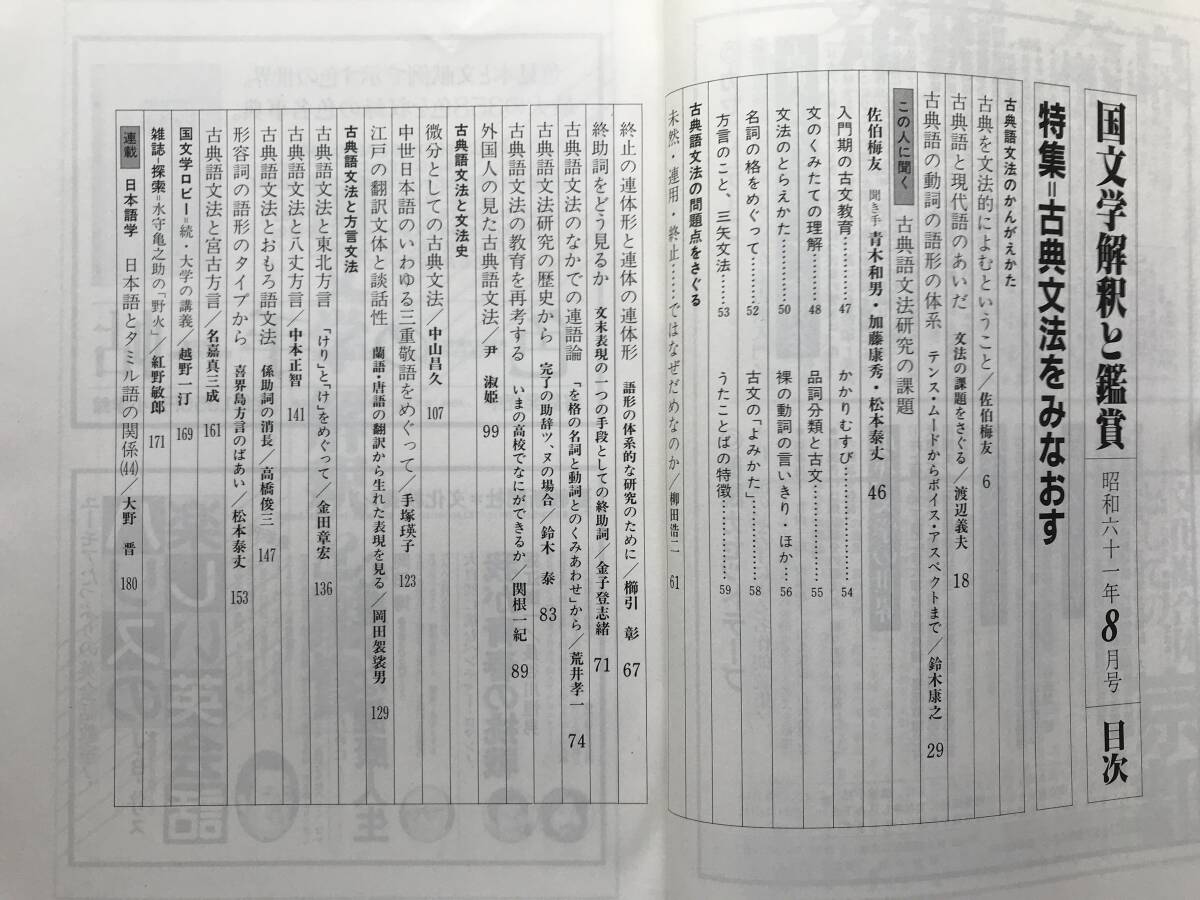 国文学解釈と鑑賞 昭和六十一年8月号 目次
特集=古典文法をみなおす
古典語文法のかんがえかた
古典を文法的によむということ/佐伯梅友 6
古典語と現代語のあいだ 文法の課題をさぐる/渡辺義夫 18
古典語の動詞の語形の体系 テンス・ムードからボイス・アスペクトまで/鈴木康之 29
この人に聞く 古典語文法研究の課題
佐伯梅友 聞き手 青木和男・加藤康秀・松本泰丈 46
入門期の古文教育…………47 かかりむすび…………54
文のくみたての理解…………48 品詞分類と古文…………55
文法のとらえかた…………50 裸の動詞の言いきり・ほか…56
名詞の格をめぐって…………52 古文の「よみかた」…………58
方言のこと、三矢文法…………53 うたことばの特徴…………59
古典語文法の問題点をさぐる
未然・連用・終止……ではなぜだめなのか/柳田浩二 61
終止の連体形と連体の連体形 語形の体系的な研究のために/櫛引 彰 67
終助詞をどう見るか 文末表現の一つの手段としての終助詞/金子登志緒 71
古典語文法のなかでの連語論 「を格の名詞と動詞とのくみあわせ」から/荒井孝一 74
古典語文法研究の歴史から 完了の助辞ツ、ヌの場合/鈴木 泰 83
古典語文法の教育を再考する いまの高校でなにができるか/関根一紀 89
外国人の見た古典語文法/尹 淑姫 99
古典語文法と文法史
微分としての古典文法/中山昌久 107
中世日本語のいわゆる三重敬語をめぐって/手塚瑛子 123
江戸の翻訳文体と談話性 蘭語・唐語の翻訳から生れた表現を見る/岡田袈裟男 129
古典語文法と方言文法
古典語文法と東北方言 「けり」と「け」をめぐって/金田章宏 136
古典語文法と八丈方言/中本正智 141
古典語文法とおもろ語文法 係助詞の消長/高橋俊三 147
形容詞の語形のタイプから 喜界島方言のばあい/松本泰丈 153
古典語文法と宮古方言/名嘉真三成 161
国文学ロビー=続・大学の講義/越野一汀 169
雑誌-探索=水守亀之助の「野火」/紅野敏郎 171
連載 日本語学 日本語とタミル語の関係(44)/大野 晋 180